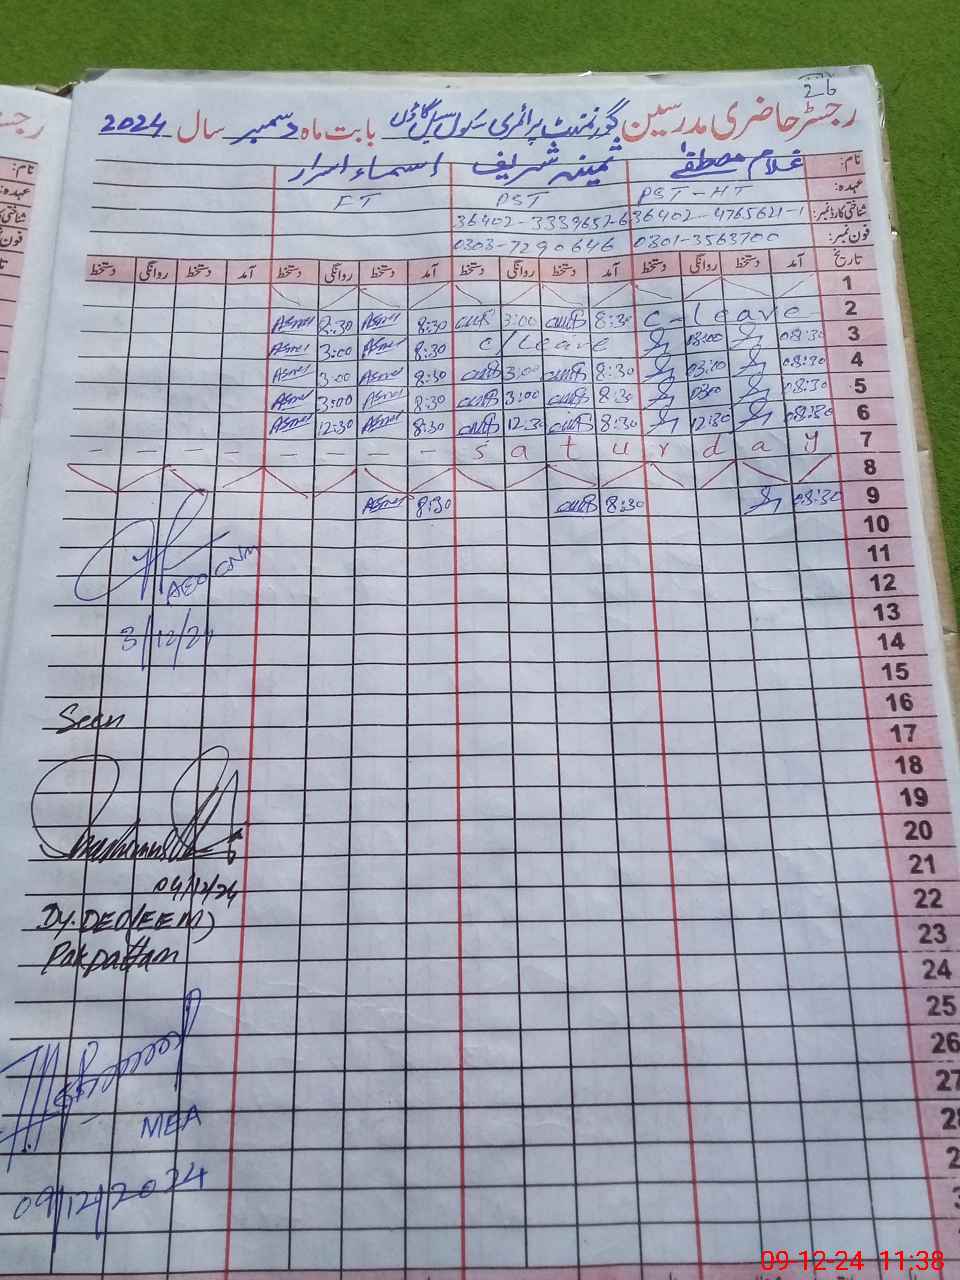 26
رجسٹر حاضری مدرسین گورنمنٹ پرائمری سکول بابت ماہ دسمبر سال 2024
نام: غلام مصطفےٰ ثمینہ شریف اسماء اسرار
عہدہ: PST-HT PST FT
شناختی کارڈ نمبر: 36402-4765621-1 36402-3339652-6
فون نمبر: 0301-3563700 0303-7290646
تاریخ آمد دستخط روانگی دستخط آمد دستخط روانگی دستخط آمد دستخط روانگی دستخط آمد دستخط روانگی دستخط
1
2 C-Leave 8:30 3:00 8:30 Asma 8:30 Asma
3 08:30 03:00 C/Leave 8:30 Asma 3:00 Asma
4 08:30 03:00 8:30 3:00 8:30 Asma 3:00 Asma
5 08:30 03:00 8:30 3:00 8:30 Asma 3:00 Asma
6 08:30 12:30 8:30 12:30 8:30 Asma 12:30 Asma
7 Saturday
8
9 08:30 8:30 8:30 Asma
10
11
12
13
14
15
16
17
18
19
20
21
22
23
24
25
26
27
28
AEO
3/12/24
Seen
04/12/24
Dy. DEO (EE M)
Pakpattan
MEA
09/12/2024
09-12-24 11:38